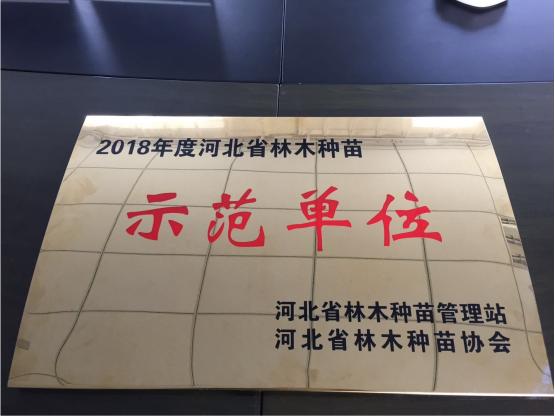 2018年度河北省林木种苗
示范单位
河北省林木种苗管理站
河北省林木种苗协会